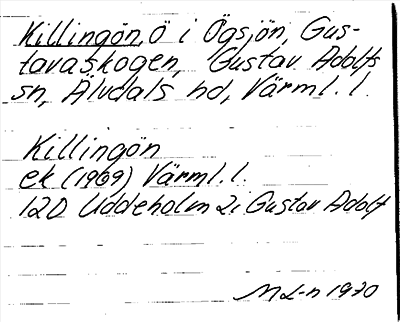 Killingön, ö i Ögsjön, Gus-
tavaskogen, Gustav Adolfs
sn, Älvdals hd, Värml. l.
Killingön
ek (1969) Värml. l.
12D Uddeholm 2i Gustav Adolf
M L-n 1970